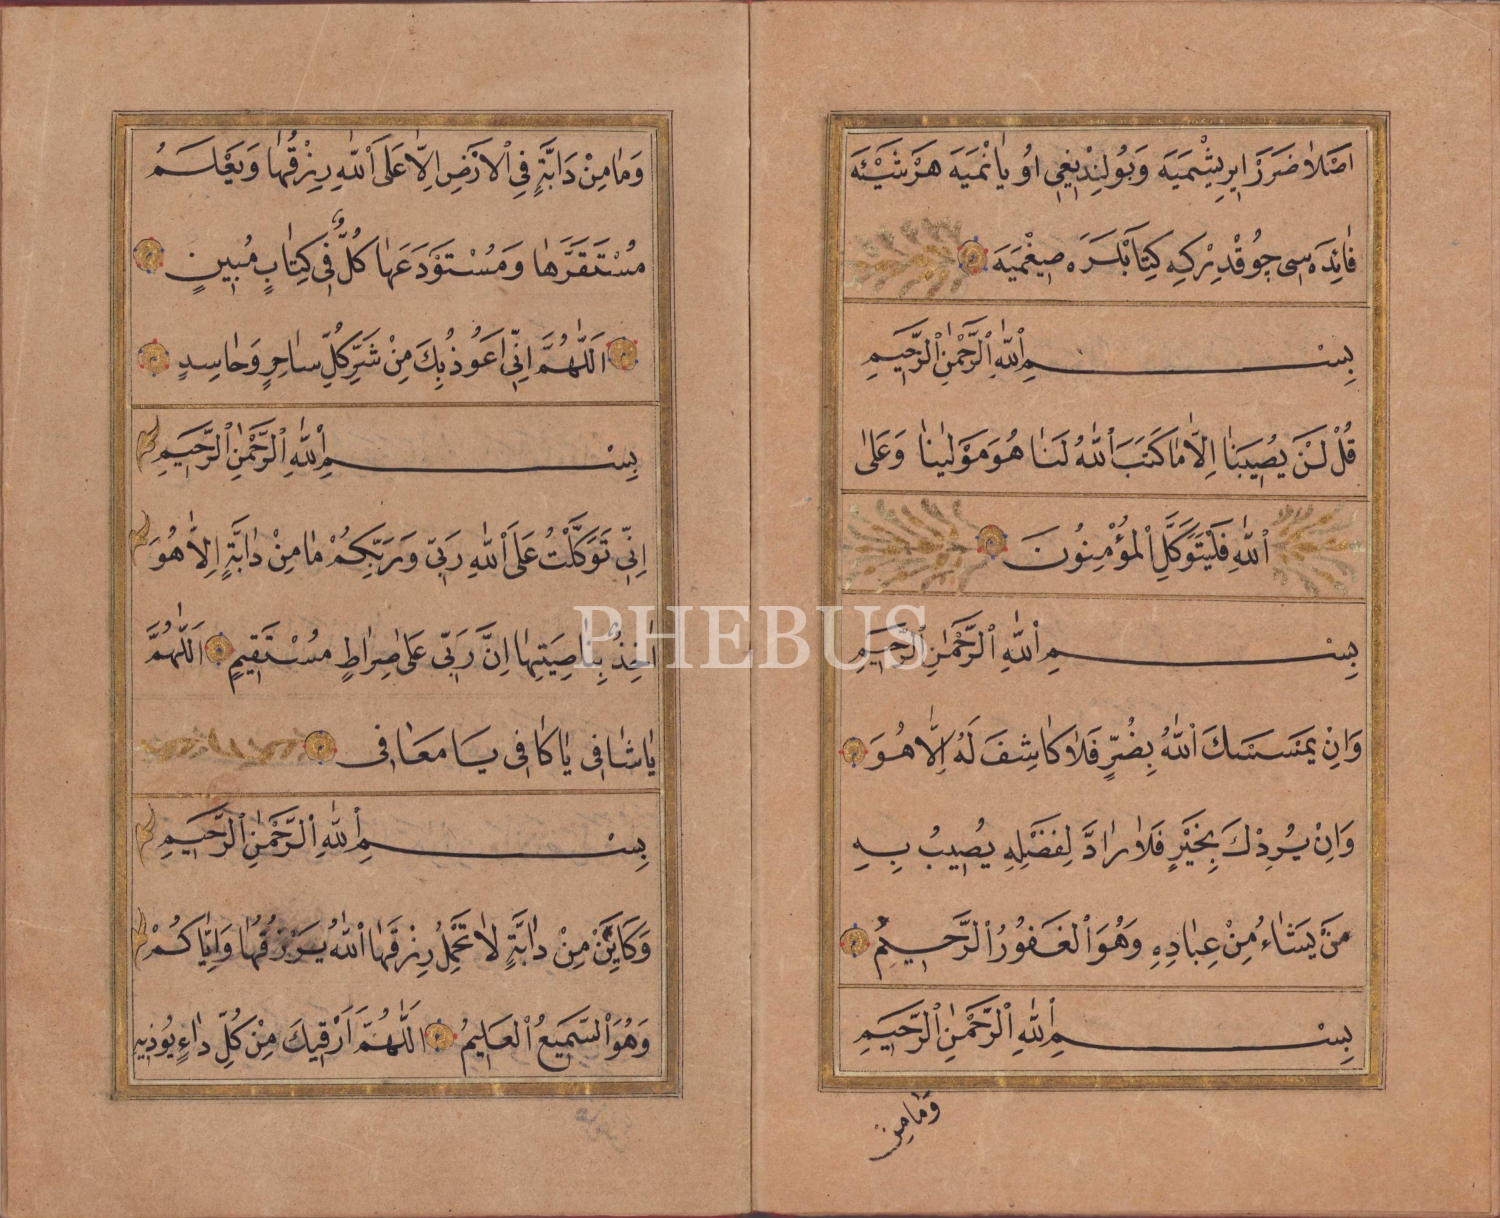 اصلا ضرر ايرشميه وبولنديغى او يانميه هر شيئه
فائده سى چوقدركه كتابلره صيغميه
بِسْمِ اللّٰهِ الرَّحْمٰنِ الرَّحِيمِ
قُلْ لَنْ يُصِيبَنَا اِلَّا مَا كَتَبَ اللّٰهُ لَنَا هُوَ مَوْلٰينَا وَعَلَى
اللّٰهِ فَلْيَتَوَكَّلِ الْمُؤْمِنُونَ
بِسْمِ اللّٰهِ الرَّحْمٰنِ الرَّحِيمِ
وَاِنْ يَمْسَسْكَ اللّٰهُ بِضُرٍّ فَلَا كَاشِفَ لَهُ اِلَّا هُوَ
وَاِنْ يُرِدْكَ بِخَيْرٍ فَلَا رَادَّ لِفَضْلِهِ يُصِيبُ بِهِ
مَنْ يَشَاءُ مِنْ عِبَادِهِ وَهُوَ الْغَفُورُ الرَّحِيمُ
بِسْمِ اللّٰهِ الرَّحْمٰنِ الرَّحِيمِ
وَمَا مِنْ
وَمَا مِنْ دَابَّةٍ فِي الْاَرْضِ اِلَّا عَلَى اللّٰهِ رِزْقُهَا وَيَعْلَمُ
مُسْتَقَرَّهَا وَمُسْتَوْدَعَهَا كُلٌّ فِى كِتَابٍ مُبِينٍ
اَللّٰهُمَّ اِنِّى اَعُوذُ بِكَ مِنْ شَرِّ كُلِّ سَاحِرٍ وَحَاسِدٍ
بِسْمِ اللّٰهِ الرَّحْمٰنِ الرَّحِيمِ
اِنِّى تَوَكَّلْتُ عَلَى اللّٰهِ رَبِّى وَرَبِّكُمْ مَا مِنْ دَابَّةٍ اِلَّا هُوَ
اٰخِذٌ بِنَاصِيَتِهَا اِنَّ رَبِّى عَلَى صِرَاطٍ مُسْتَقِيمٍ اَللّٰهُمَّ
يَا شَافِى يَا كَافِى يَا مَعَافِى
بِسْمِ اللّٰهِ الرَّحْمٰنِ الرَّحِيمِ
وَكَاَيِّنْ مِنْ دَابَّةٍ لَا تَحْمِلُ رِزْقَهَا اللّٰهُ يَرْزُقُهَا وَاِيَّاكُمْ
وَهُوَ السَّمِيعُ الْعَلِيمُ اَللّٰهُمَّ اَرْقِيكَ مِنْ كُلِّ دَاءٍ يُوذِيهِ
PHEBUS